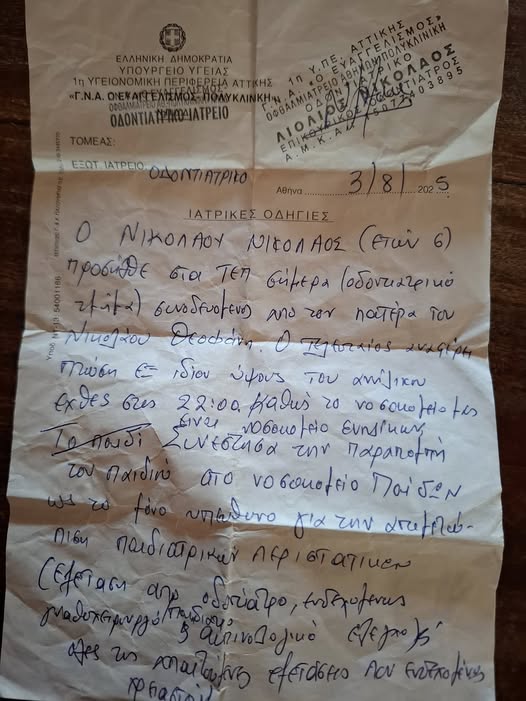 ΕΛΛΗΝΙΚΗ ΔΗΜΟΚΡΑΤΙΑ
ΥΠΟΥΡΓΕΙΟ ΥΓΕΙΑΣ
1η ΥΓΕΙΟΝΟΜΙΚΗ ΠΕΡΙΦΕΡΕΙΑ ΑΤΤΚΗΣ
"Γ.Ν.Α. Ο ΕΥΑΓΓΕΛΙΣΜΟΣ - ΠΟΛΥΚΛΙΝΙΚΗ"
ΟΔΟΝΤΙΑΤΡΕΙΟ
1η Υ.ΠΕ. ΑΤΤΙΚΗΣ
Γ.Ν.Α. «Ο ΕΥΑΓΓΕΛΙΣΜΟΣ»
ΟΦΘΑΛΜΙΑΤΡΕΙΟ ΑΘΗΝΩΝ ΠΟΛΥΚΛΙΝΙΚΗ
ΟΔΟΝΤΙΑΤΡΙΚΟ
ΛΙΟΛΙΟΣ ΝΙΚΟΛΑΟΣ
Α.Μ.Κ.Α.
ΤΟΜΕΑΣ:
ΕΞΩΤ. ΙΑΤΡΕΙΟ: ΟΔΟΝΤΙΑΤΡΙΚΟ
Αθήνα 3/8/2025
ΙΑΤΡΙΚΕΣ ΟΔΗΓΙΕΣ
Ο ΝΙΚΟΛΑΟΥ ΝΙΚΟΛΑΟΣ (ετών 6)
προσήλθε στα ΤΕΠ σήμερα (οδοντιατρικό
τμήμα) συνοδευόμενος από τον πατέρα του
Νικολάου Θεοφάνη. Ο τελευταίος αναφέρει
πτώση εξ ιδίου ύψους του ανήλικου
εχθές στις 22:00. Καθώς το νοσοκομείο μας
είναι νοσοκομείο ενηλίκων
Το παιδί Συνέστησα την παραπομπή
του παιδιού στο νοσοκομείο Παίδων
ως το μόνο υπεύθυνο για την αντιμετώ-
πιση παιδιατρικών περιστατικών
(εξέταση από οδοντίατρο, ενδεχομένως
γναθοχειρουργό, παιδίατρο
ακτινολογικό έλεγχο &
όλες τις απαιτούμενες εξετάσεις που ενδεχομένως